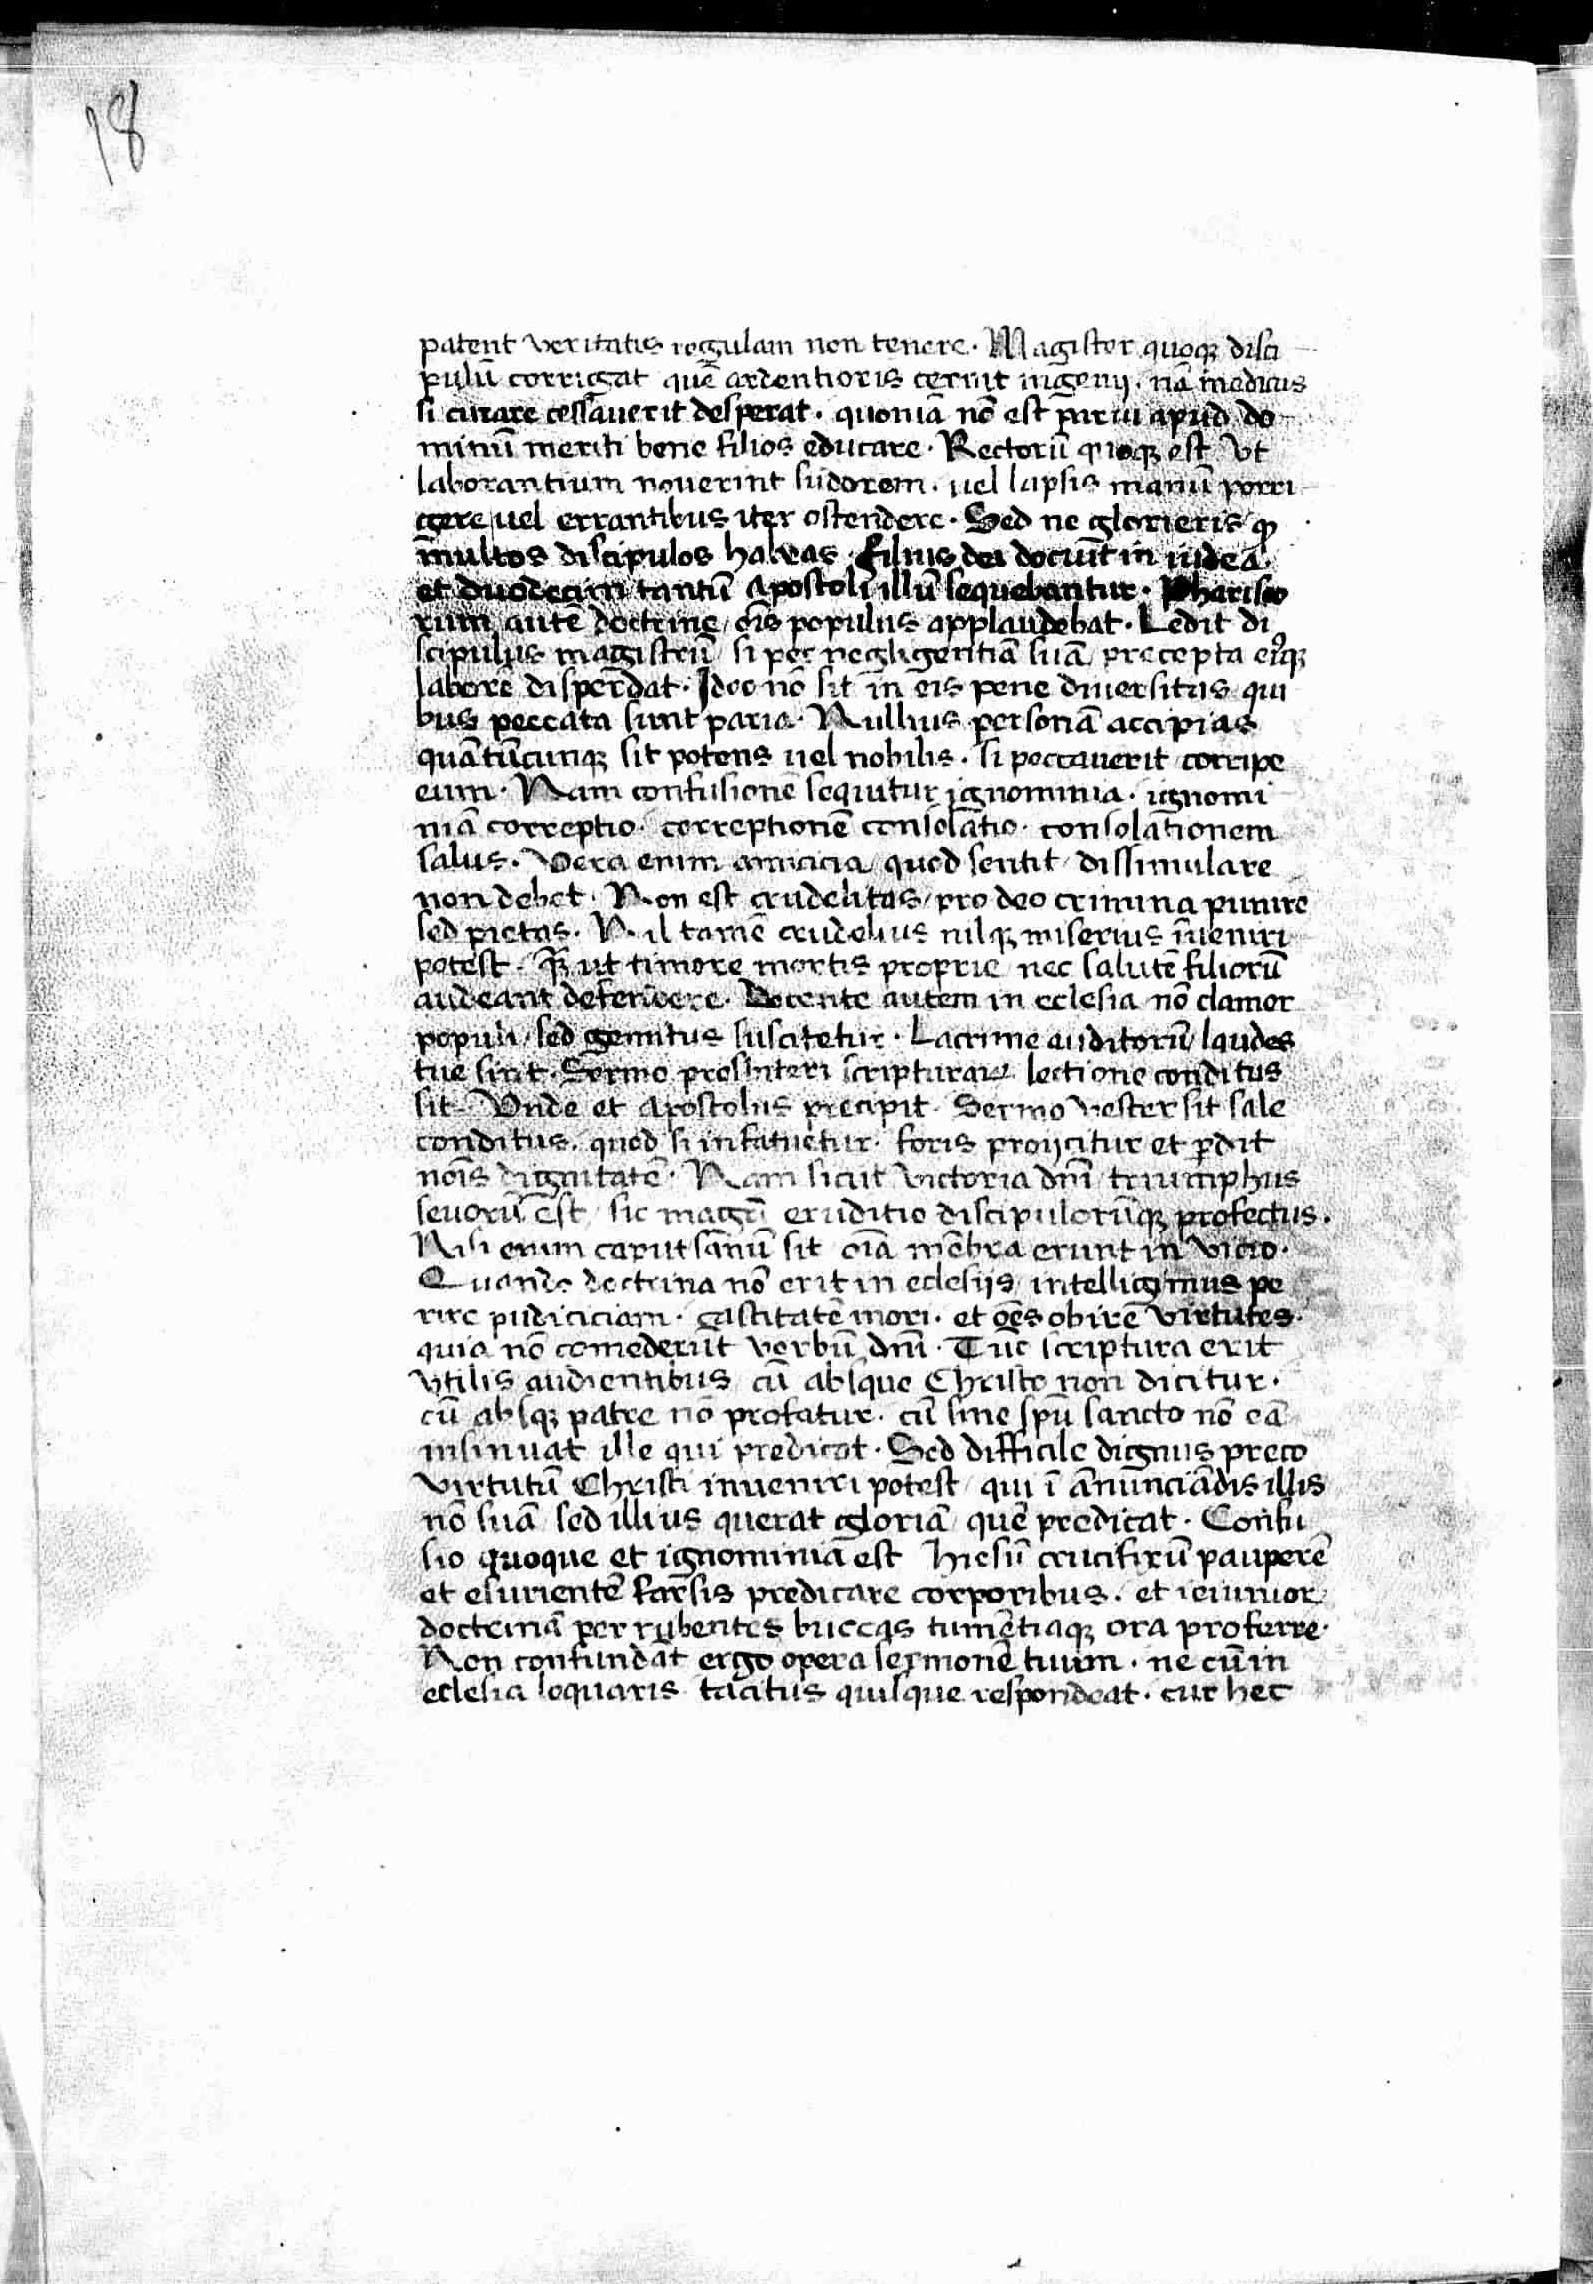 18
patent veritatis regulam non tenere. Magister quoqꝫ disci
pulū corrigat quē ardentioris cernit ingenij. nā medicus
si curare cessaverit desperat. quoniā nō est parui apud do
minū meriti bene filios educare. Rectorū quoqꝫ est Vt
laborantium noverint sudorem. uel lapsis manū porri
gere uel errantibus iter ostendere. Sed ne glorieris ꝙ
multos discipulos habeas. Filius dei docuit in iudea
et duodecim tantū Apostoli illū sequebantur. Phariseo
rum autē doctrine / oīs populus applaudebat. Ledit di
scipulus magistrū si per negligentiā suā precepta eiꝰqꝫ
labore disperdat. Ideo nō sit in eis pene diversitas qui
bus peccata sunt paria. Nullius personā accipias
quātūcunqꝫ sit potens uel nobilis. si peccaverit corripe
eum. Nam confusionē sequitur ignominia. ignomi
niā correptio. correptionē consolatio. consolationem
salus. Vera enim amicicia / quod sentit / dissimulare
non debet. Non est crudelitas / pro deo crimina punire
sed pietas. Nil tamē crudelius nilqꝫ miserius inveniri
potest. qꝫ ut timore mortis proprie / nec salutē filiorū
audeant defendere. Docente autem in eclesia nō clamor
populi / sed gemitus suscitetur. Lacrime auditorū / laudes
tue sint. Sermo presbiteri scripturaꝝ lectione conditus
sit. Vnde et Apostolus precipit. Sermo vester sit sale
conditus. quod si infatuetur. foris proijcitur et ꝑdit
noīs dignitatē. Nam sicut victoria dnī / triumphus
seuorū est / sic magrī eruditio discipulorūqꝫ profectus.
Nisi enim caput sanū sit oīa mēbra erunt in vicio.
Quando doctrina nō erit in eclesijs / intelligimus pe
rire pudiciciam. castitatē mori. et oēs obire virtutes.
quia nō comederūt verbū dnī. Tūc scriptura erit
vtilis audientibus / cū absque Christo non dicitur.
cū absqꝫ patre nō profatur. cū sine spū sancto nō eā
insinuat ille qui predicat. Sed difficile dignus preco
virtutū Christi inveniri potest / qui ī ānunciādis illis
nō suā sed illius querat gloriā / quē predicat. Confu
sio quoque et ignominia est hiesū crucifixū pauperē
et esurientē farsis predicare corporibus. et ieiunior
doctrinā per rubentes buccas tumētiaqꝫ ora proferre.
Non confundāt ergo opera sermonē tuum. ne cū in
eclesia loquaris tacitus quisque respondeat. cur hec